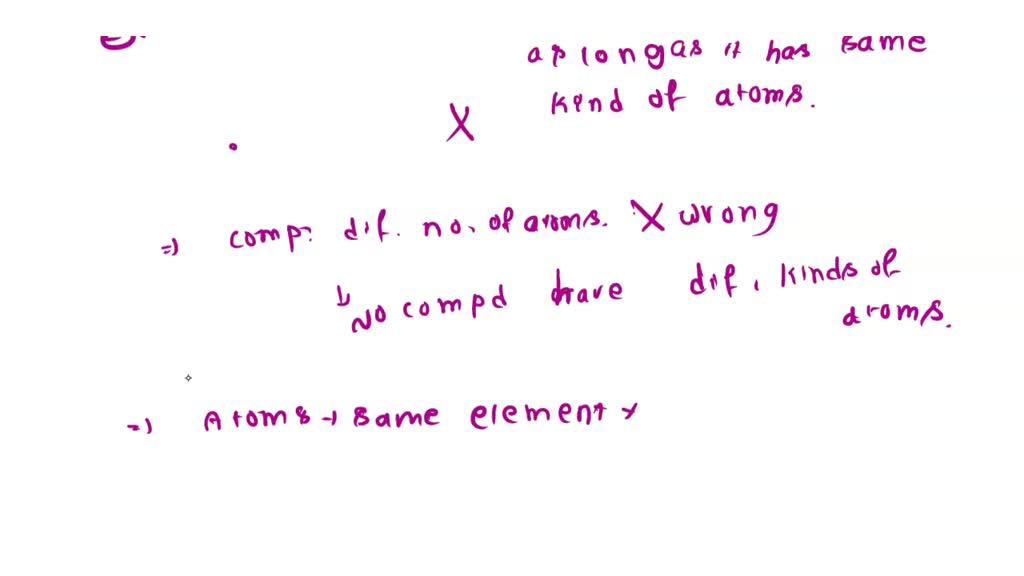 as long as it has same
kind of atoms.
X
=) comp: dif. no. of atoms. X wrong
↳ No compd have dif. kinds of
atoms.
=) Atoms → same element x